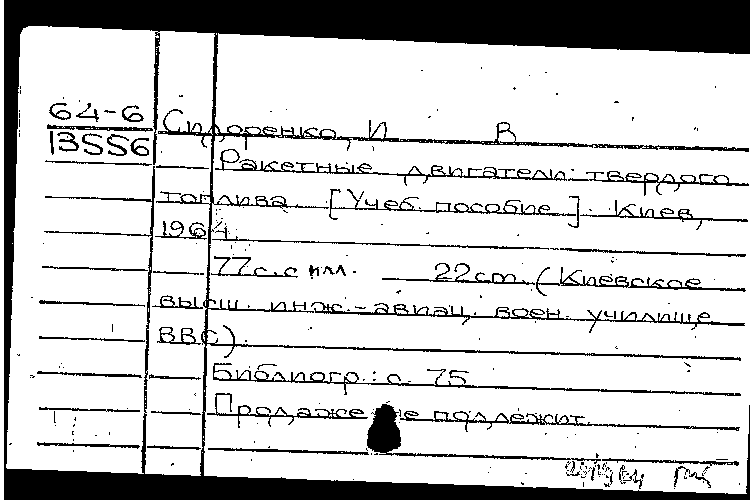 64-6
13556
Сидоренко, И В
Ракетные двигатели твердого
топлива. [Учеб. пособие]. Киев,
1964.
77 с. с илл. 22 cm. (Киевское
высш. инж.-авиац. воен. училище
ВВС).
Библиогр.: с. 75
Продаже не подлежит.